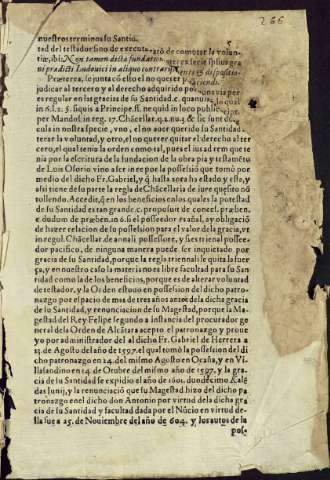 266
nuestros terminos su Santidad
tad del testador sino de executar
tio, ibi: Non tamen dicta fundation
ni prædicti Ludouici in aliquo contrary
Preterea, se junta cō esto el no querer
judicar al tercero y al derecho adquirido
es regular en las gracias de su Santidad. c. quanuis
in 6. l. 2. §. siquis a Principe. ff. ne quid in loco public.
per Mandos. in reg. 17. Chācellar. q. 2. nu. 3. &
cula in nostra specie, vno, el no auer querido su Santidad
terar la voluntad, y otro, el no querer quitar el derecho al ter
cero, el qual tenia la orden como tal, pues el ius ad rem que te
nia por la escritura de la fundacion de la obra pia y testamēto
de Luis Osorio vino a ser in re por la possessiō que tomò por
medio del dicho Fr. Gabriel, q̄ hasta aora ha estado y esso, y
assi tiene de su parte la regla de Chācellaria de iure quęsito nō
tollendo. Accedit, q̄ en los beneficios en los quales la potestad
de su Santidad es tan grande. c. proposuit de conces. præben.
c. dudum de præben. in 6. si el possedor es añal, ay obligació
de hazer relacion de su possession para el valor de la gracia, vt
in regul. Chācellar. de annali possessore, y si es trienal possee-
dor pacifico, de ninguna manera puede ser inquietado. por
gracia de su Santidad, porque la regla triennal se quita la fuer
ça, y en nuestro caso la materia no es libre facultad para su San
tidad como la de los beneficios, porque es de alterar voluntad
de testador, y la Orden estuuo en possession del dicho patro-
nazgo por espacio de mas de tres años antes de la dicha gracia
de su Santidad, y renunciacion de su Magestad, porque la Ma-
gestad del Rey Felipe segundo a instancia del procurador ge
neral de la Orden de Alcātara acepto el patronazgo y proue
yo por administrador del al dicho Fr. Gabriel de Herrera a
13. de Agosto del año de 1597. el qual tomò la possession del di
cho patronazgo en 24. del mismo Agosto en Ocaña, y en Vi-
llasandino en 14. de Otubre del mismo año de 1597. y la gra-
cia de su Santidad se expidio el año de 1601. duodecimo Kalē
das Iunij, y la renunciacion que su Magestad hizo del dicho pa
tronazgo en el dicho don Antonio por virtud de la dicha gra
cia de su Santidad y facultad dada por el Nūcio en virtud de-
lla fue a 25. de Nouiembre del año de 604. y los autos de la
pos-